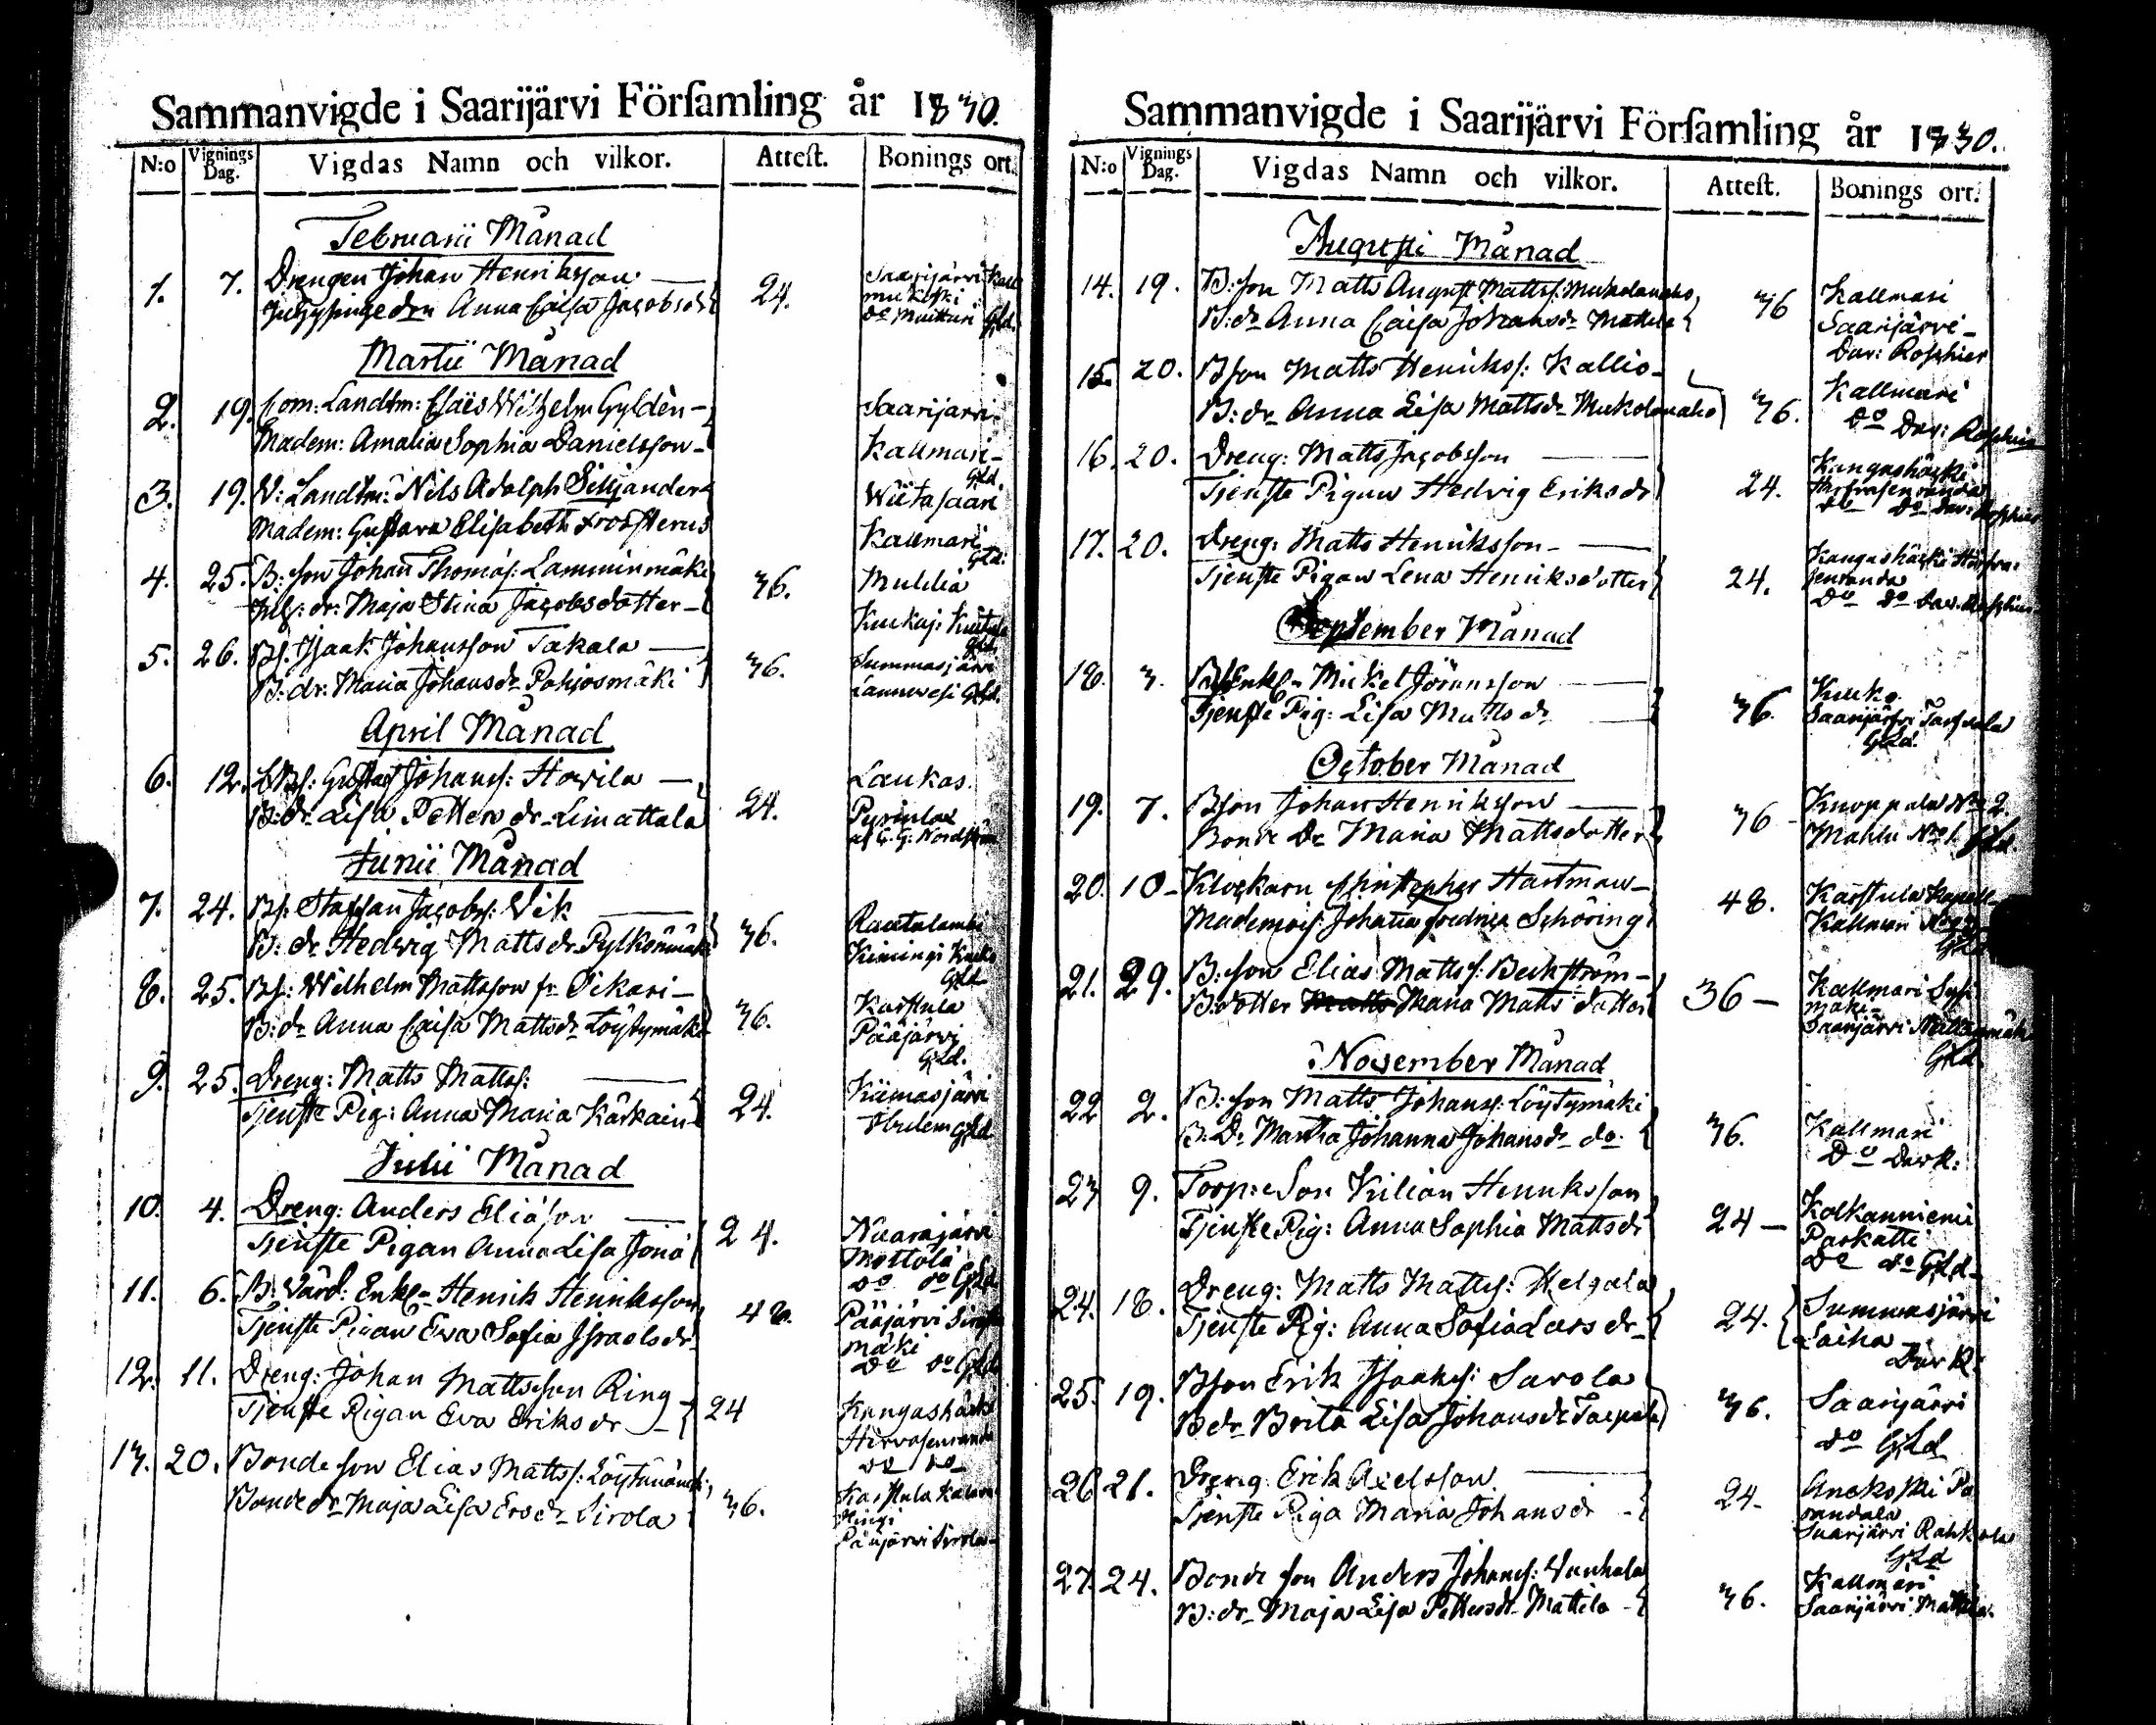 Sammanvigde i Saarijärvi Församling år 1830.
N:o Vignings Dag. Vigdas Namn och vilkor. Attest. Bonings ort.
Februarii Månad
1. 7. Drengen Johan Henriksson 24. Saarijärvi
Anna Caisa Jacobsdr Do Muittari Gld.
Martii Månad
2. 19. Com: Landtm: Claës Wilhelm Gyldèn Saarijärvi
Madem: Amalia Sophia Danielsson Kallmari Gld.
3. 19. V: Landtm: Nils Adolph Siljander Wiitasaari
Madem: Gustava Elisabeth Kallmari Gld.
4. 25. B: son Johan Thomas: Lamminmäki 36. Mulilia
dr: Maja Stina Jacobsdotter Gld.
5. 26. Bs. Isaak Johansson Takala 36. Summasjärvi
B: dr: Maria Johansdr Pohjosmäki Lannevesi Gld.
April Månad
6. 12. Bs: Gustaf Johans: Howila Laukas.
B: dr Lisa Petters dr Limattala 24. Pyrinlax
af C. G: Nordström
Junii Månad
7. 24. Bs: Staffan Jacobs: Vik 36. Rautalambi
B: dr Hedvig Matts dr Pylkönmäki Kimingi Gld
8. 25. Bs: Wilhelm Mattsson fr Oikari 36. Karstula
B: dr Anna Caisa Mattsdr Löytymäki Pääjärvi
Gld.
9. 25. Dreng: Matts Matts: 24. Kiimasjärvi
Tjenste Pig: Anna Maria Kärkäin Gld
Julii Månad
10. 4. Dreng: Anders Eliasson 24. Naarajärvi
Tjenste Pigan Anna Lisa Jona Mottola
do do Gld
11. 6. B: Värd: Enkl Henrik Henriksson 48. Pääjärvi
Tjenste Pigan Eva Sofia Israelsdr mäki
Do do Gld
12. 11. Dreng: Johan Mattsson Ring 24 Kangashäkki
Tjenste Pigan Eva Eriksdr Hirvasenranda
do do
13. 20. Bonde son Elias Matts: 36. Karstula
Bonde dr Maja Lisa Ersdr Sirola Pääjärvi Sirola
Sammanvigde i Saarijärvi Församling år 1830.
N:o Vignings Dag. Vigdas Namn och vilkor. Attest. Bonings ort.
Augusti Månad
14. 19. B: son Matts August Matts: Mukolanaho 36 Kallmari
B: dr Anna Caisa Johansdr Mattila Saarijärvi
Dav: Roschier
15. 20. Bson Matts Henriks: Kallio 36. Kallmari
B: dr Anna Lisa Mattsdr Mukolanaho Do Dav: Roschier
16. 20. Dreng: Matts Jacobsson 24. Kangashäkki
Tjenste Pigan Hedvig Eriksdr Do Do Dav: Roschier
17. 20. Dreng: Matts Henriksson 24. Kangashäkki
Tjenste Pigan Lena Henriksdotter Do Do Dav. Roschier
September Månad
18. 3. Enkl Mickel Jöransson 36.
Tjenste Pig: Lisa Matts dr Saarijärvi Tarvala
Gld.
October Månad
19. 7. Bson Johan Henriksson 36 Knoppala No 2.
Bonde Dr Maria Mattsdotter Mahlu No 1. Gld.
20. 10 Klockarn Christopher Hartman 48. Karstula Kapell
Mademois: Johanna Fredrica Schöring Kallmari
Gld
21. 29. B: son Elias Matts: Beckström 36 Kallmari
B: dotter Matts Maria Matts dotter Saarijärvi
Gld
November Månad
22 2. B: son Matts Johans: Löytymäki 36. Kallmari
B: Dr Martha Johanna Johansdr do. Do Dav R:
23 9. Torp: Son Kilian Henriksson 24 Kolkanniemi
Tjenste Pig: Anna Sophia Mattsdr Paskatti
Do do Gld
24. 18. Dreng: Matts Matts: Helgala 24. Summasjärvi
Tjenste Pig: Anna Sofia Lars dr Laiha
Dav R:
25. 19. Bson Erik Isaaks: Sarola 36. Saarijärvi
B dr Brita Lisa Johansdr Taipale do Gld
26 21. Dreng Erik Axelsson 24
Tjenste Piga Maria Johansdr Saarijärvi
Gld
27. 24. Bonde son Anders Johans: Vanhala 36. Kallmari
B: dr Maja Lisa Pettersdr Mattila Saarijärvi Mattila